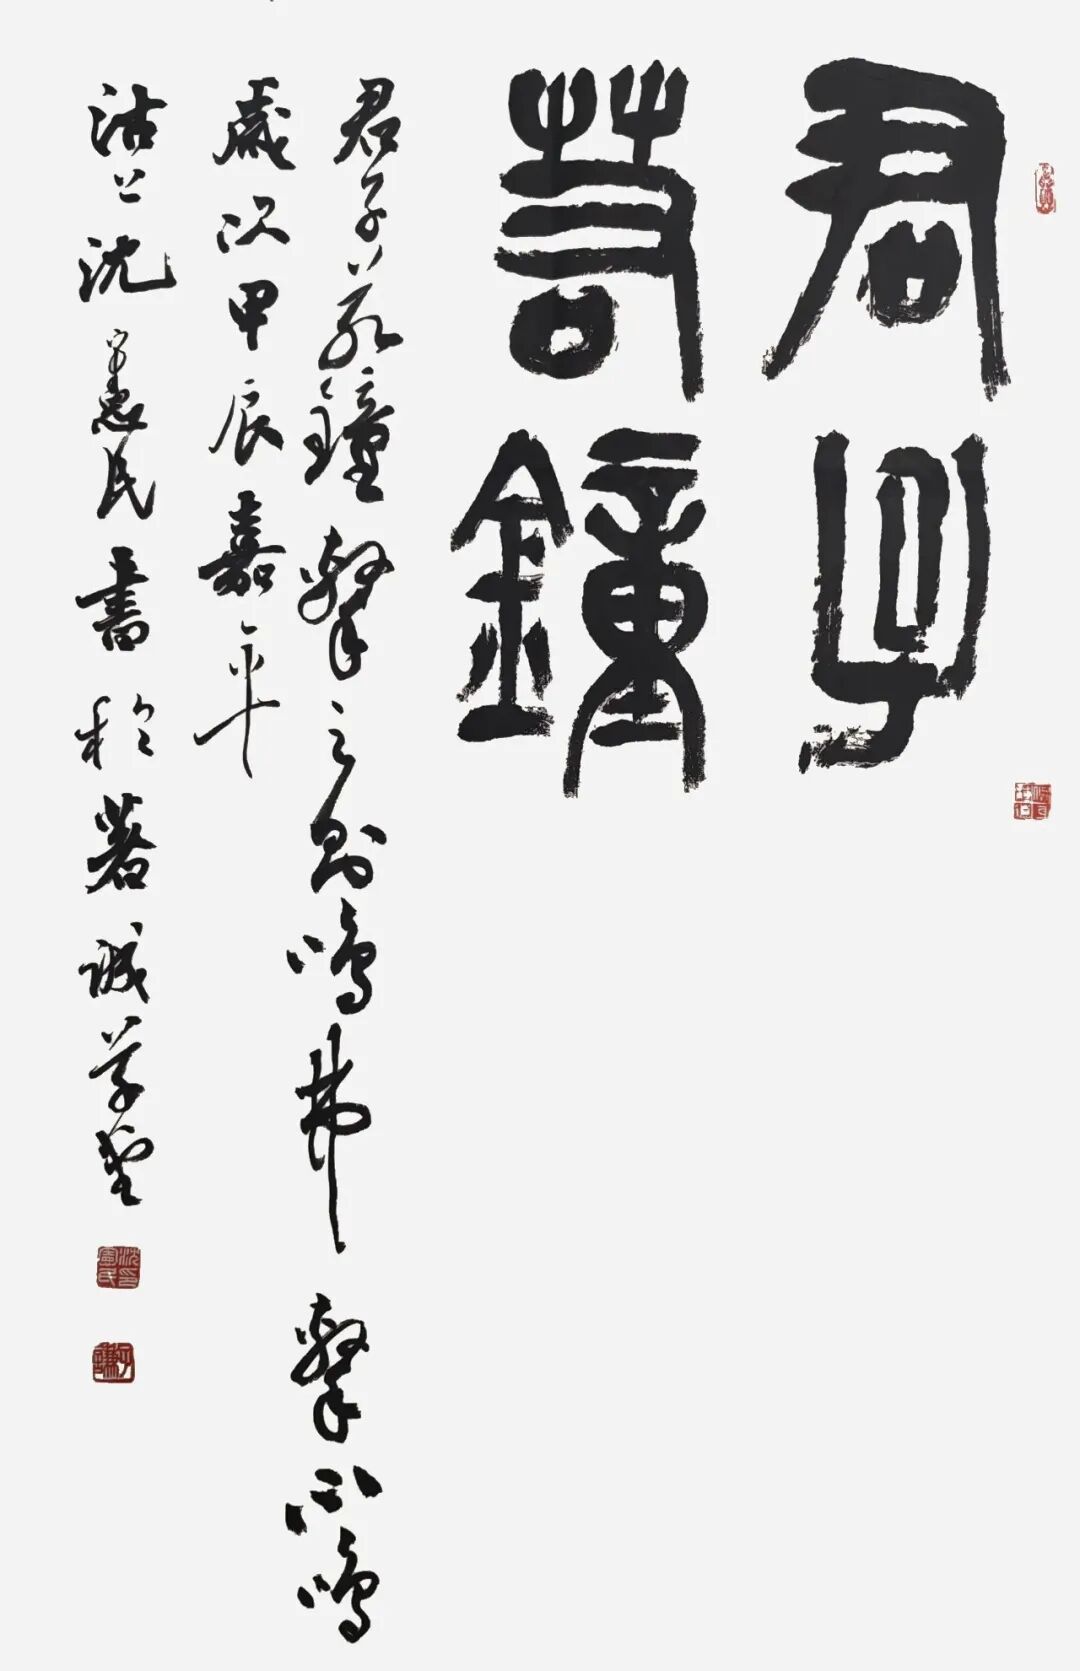 君子
若鐘
君子若鐘擊之則鳴弗擊不鳴
歲次甲辰嘉平
沽上沈憲民書於著誠草堂